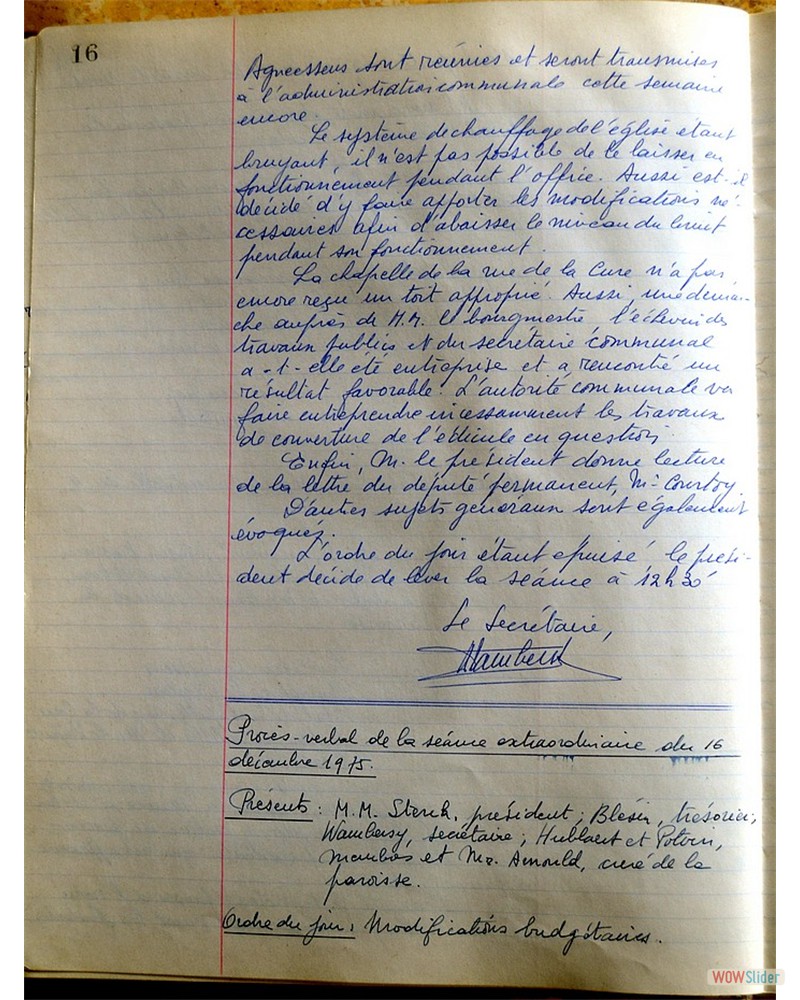 16
Agneessens sont réunies et seront transmises
à l'administration communale cette semaine
encore.
Le système de chauffage de l'église étant
bruyant, il n'est pas possible de le laisser en
fonctionnement pendant l'office. Aussi est-il
décidé d'y faire apporter les modifications né-
cessaires afin d'abaisser le niveau du bruit
pendant son fonctionnement.
La chapelle de la rue de la Cure n'a pas
encore reçu un toit approprié. Aussi, une démar-
che auprès de M.M. le bourgmestre, l'échevin des
travaux publics et du secrétaire communal
a-t-elle été entreprise et a rencontré un
résultat favorable. L'autorité communale va
faire entreprendre incessamment les travaux
de couverture de l'édicule en question.
Enfin, M. le président donne lecture
de la lettre du député permanent, Mr Courtoy.
D'autres sujets généraux sont également
évoqués.
L'ordre du jour étant épuisé le prési-
dent décide de lever la séance à 12h30
Le Secrétaire,
Procès-verbal de la séance extraordinaire du 16
décembre 1975.
Présents : M.M. Sterck, président; Blésin, trésorier;
Wambersy, secrétaire; Hublaert et Potvin,
membres et Mr. Arnould, curé de la
paroisse.
Ordre du jour : Modifications budgétaires.
WOWSlider